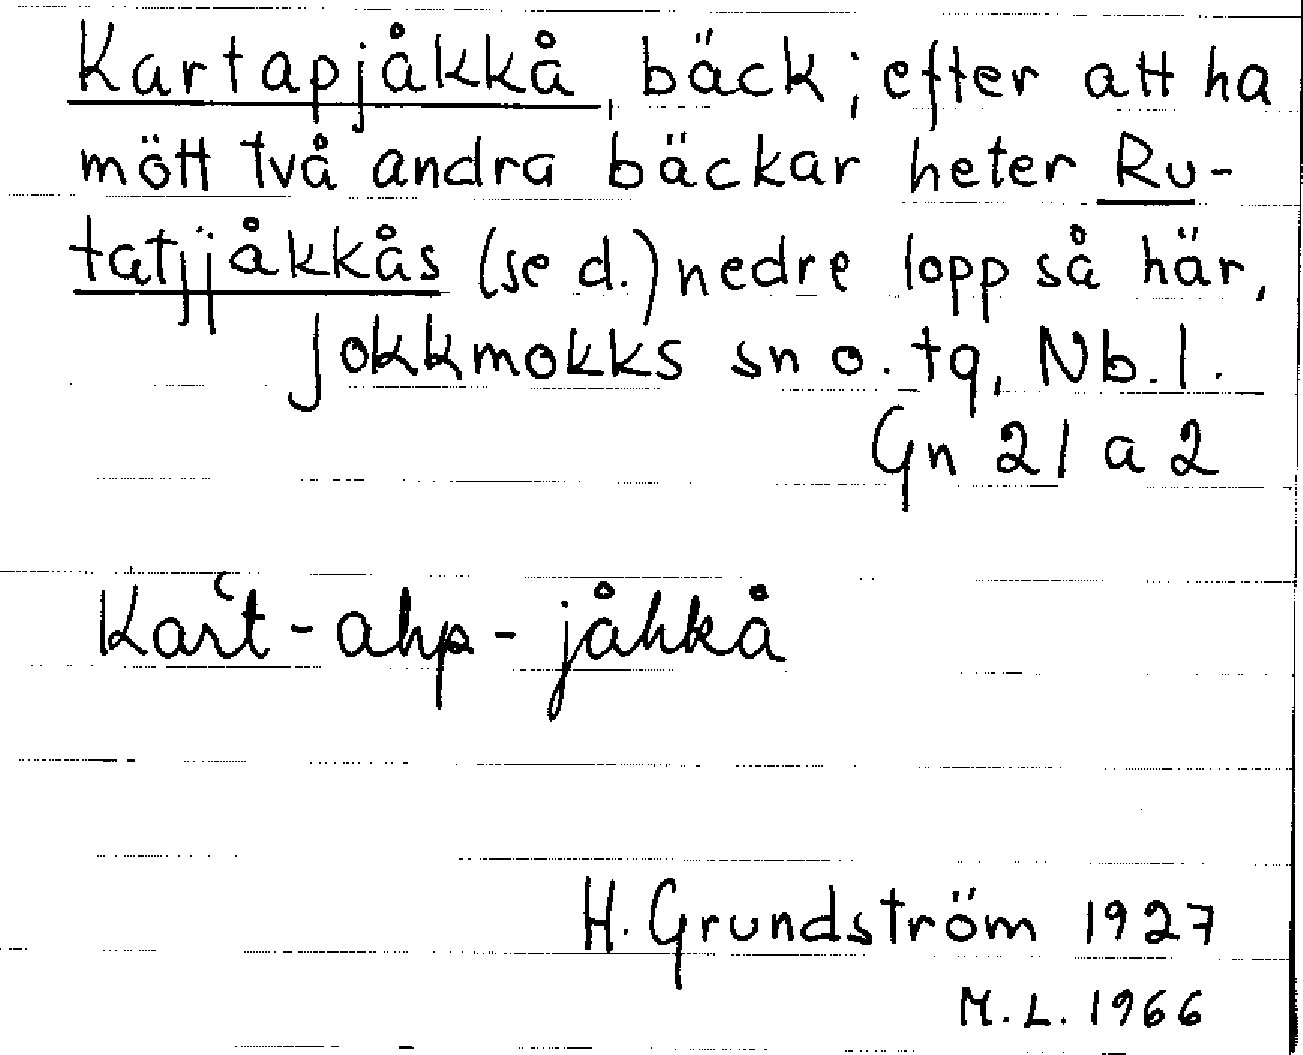 Kartapjåkkå, bäck; efter att ha
mött två andra bäckar heter Ru-
tatjjåkkås (se d.) nedre lopp så här,
Jokkmokks sn o. tg, Nb. l.
Gn 21 a 2
Kar̔t-ahp-jåhkå
H. Grundström 1927
M.L. 1966